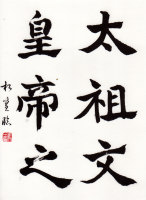 太祖文
皇帝之